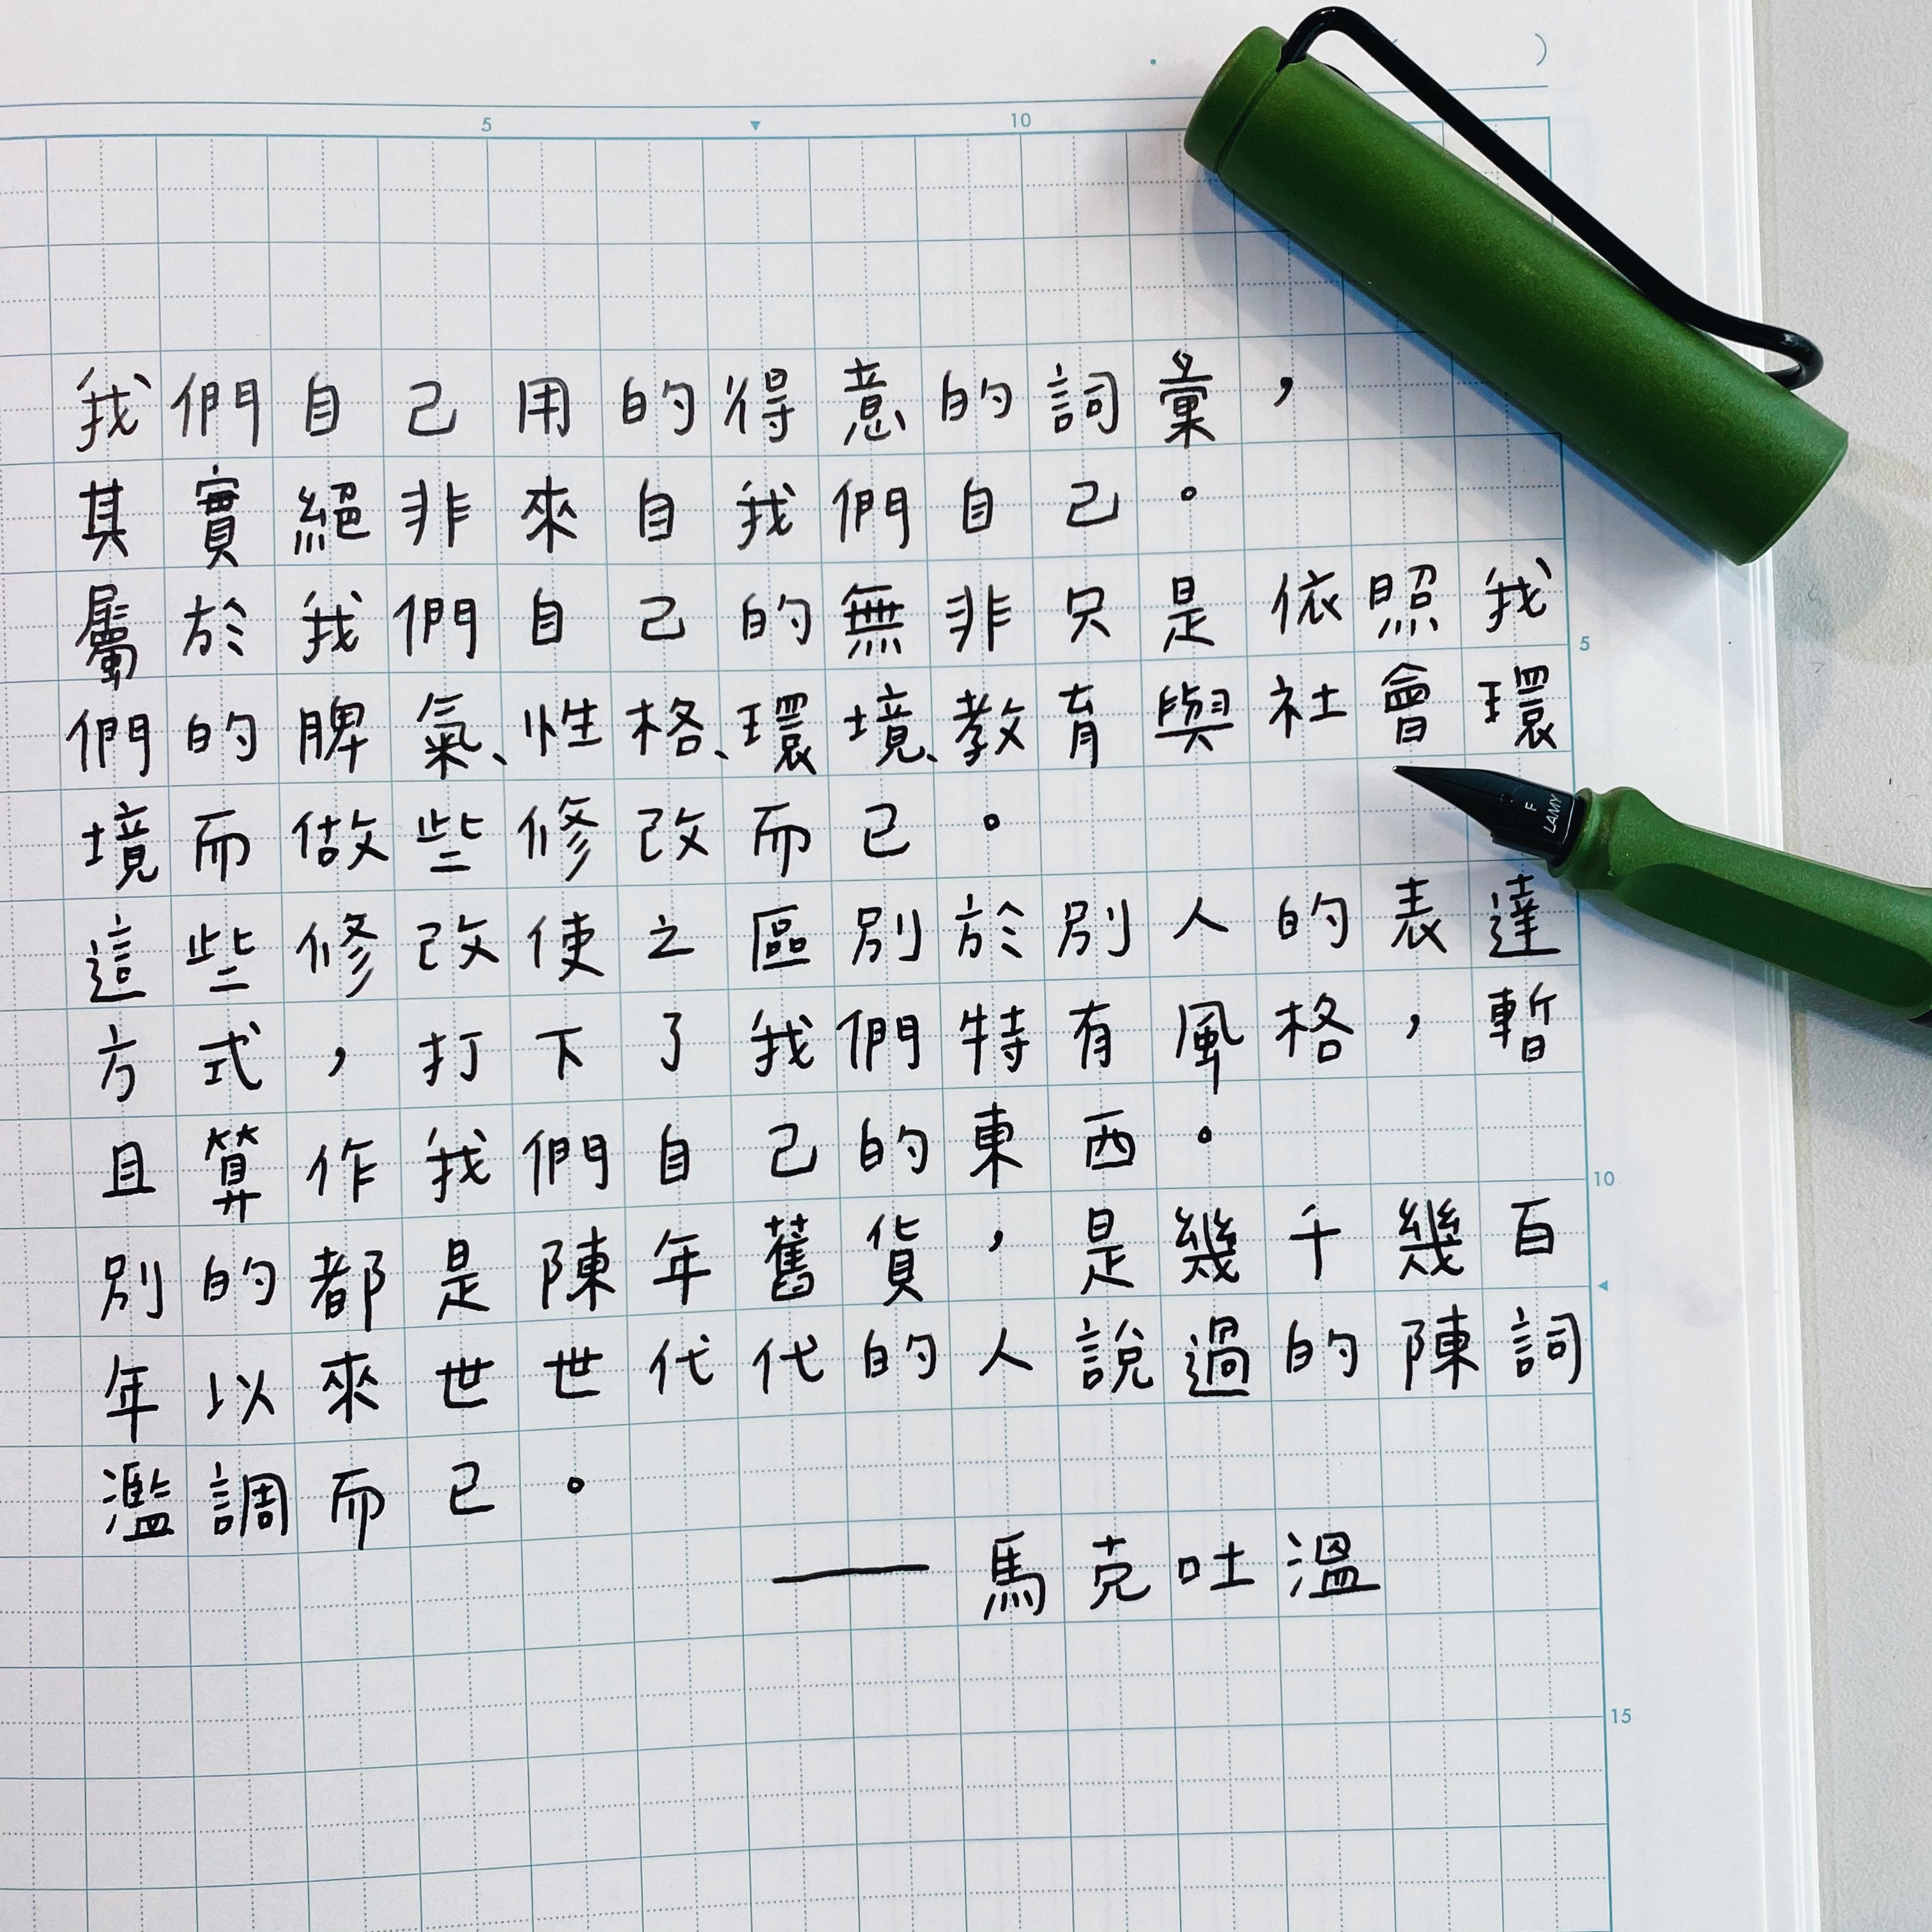 5
10
我們自己用的得意的詞彙，
其實絕非來自我們自己。
屬於我們自己的無非只是依照我
5
們的脾氣、性格、環境、教育與社會環
境而做些修改而已。
F
LAMY
這些修改使之區別於別人的表達
方式，打下了我們特有風格，暫
且算作我們自己的東西。
10
別的都是陳年舊貨，是幾千幾百
年以來世世代代的人說過的陳詞
濫調而已。
——馬克吐溫
15